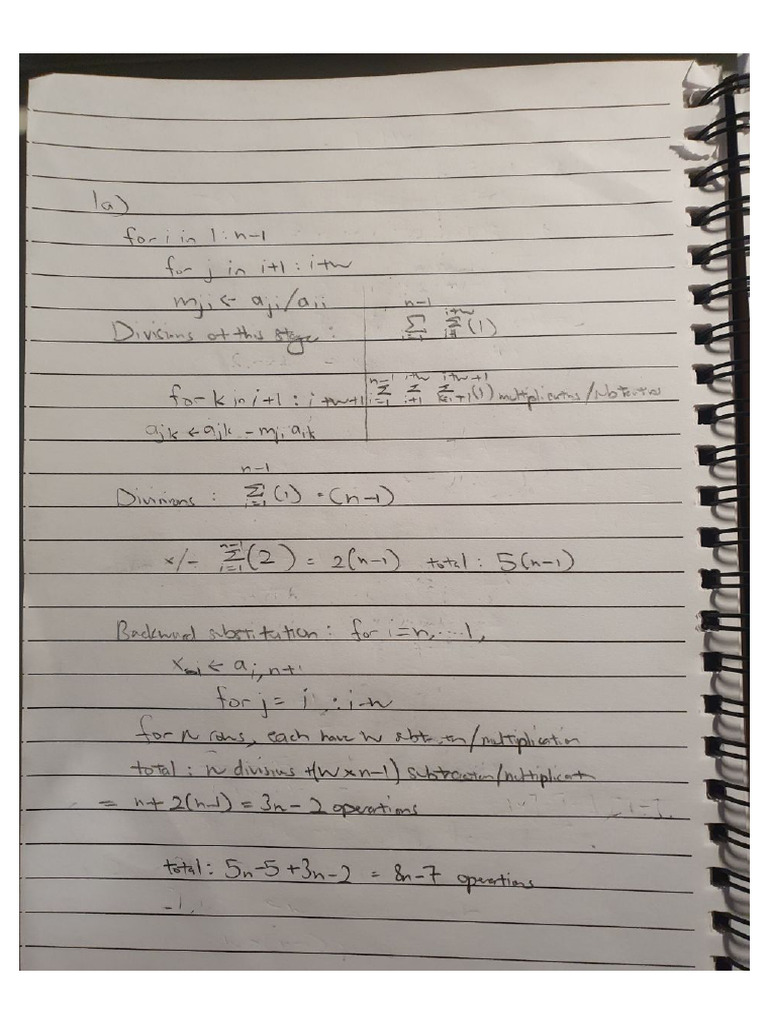 1a)
for i in 1:n-1
for j in i+1 : i+w
mji ← aji/aii
Divisions at this stage: n-1 Σ i=1 i+w Σ i+1 (1)
for k in i+1 : i+w+1 n-1 Σ i=1 i+w Σ i+1 i+w+1 Σ k=i+1 (1) multiplications/
ajk ← ajk - mji aik
Divisions : n-1 Σ i=1 (1) = (n-1)
x/- n-1 Σ i=1 (2) = 2(n-1) total : 5(n-1)
Backward substitution: for i=n,....1,
← ai,n+1
for j = i : i-w
for n rows, each have w /multiplication
total: n divisions +(w x n-1) subtraction/multiplicat
= n+2(n-1) = 3n-2 operations
total: 5n-5+3n-2 = 8n-7 operations